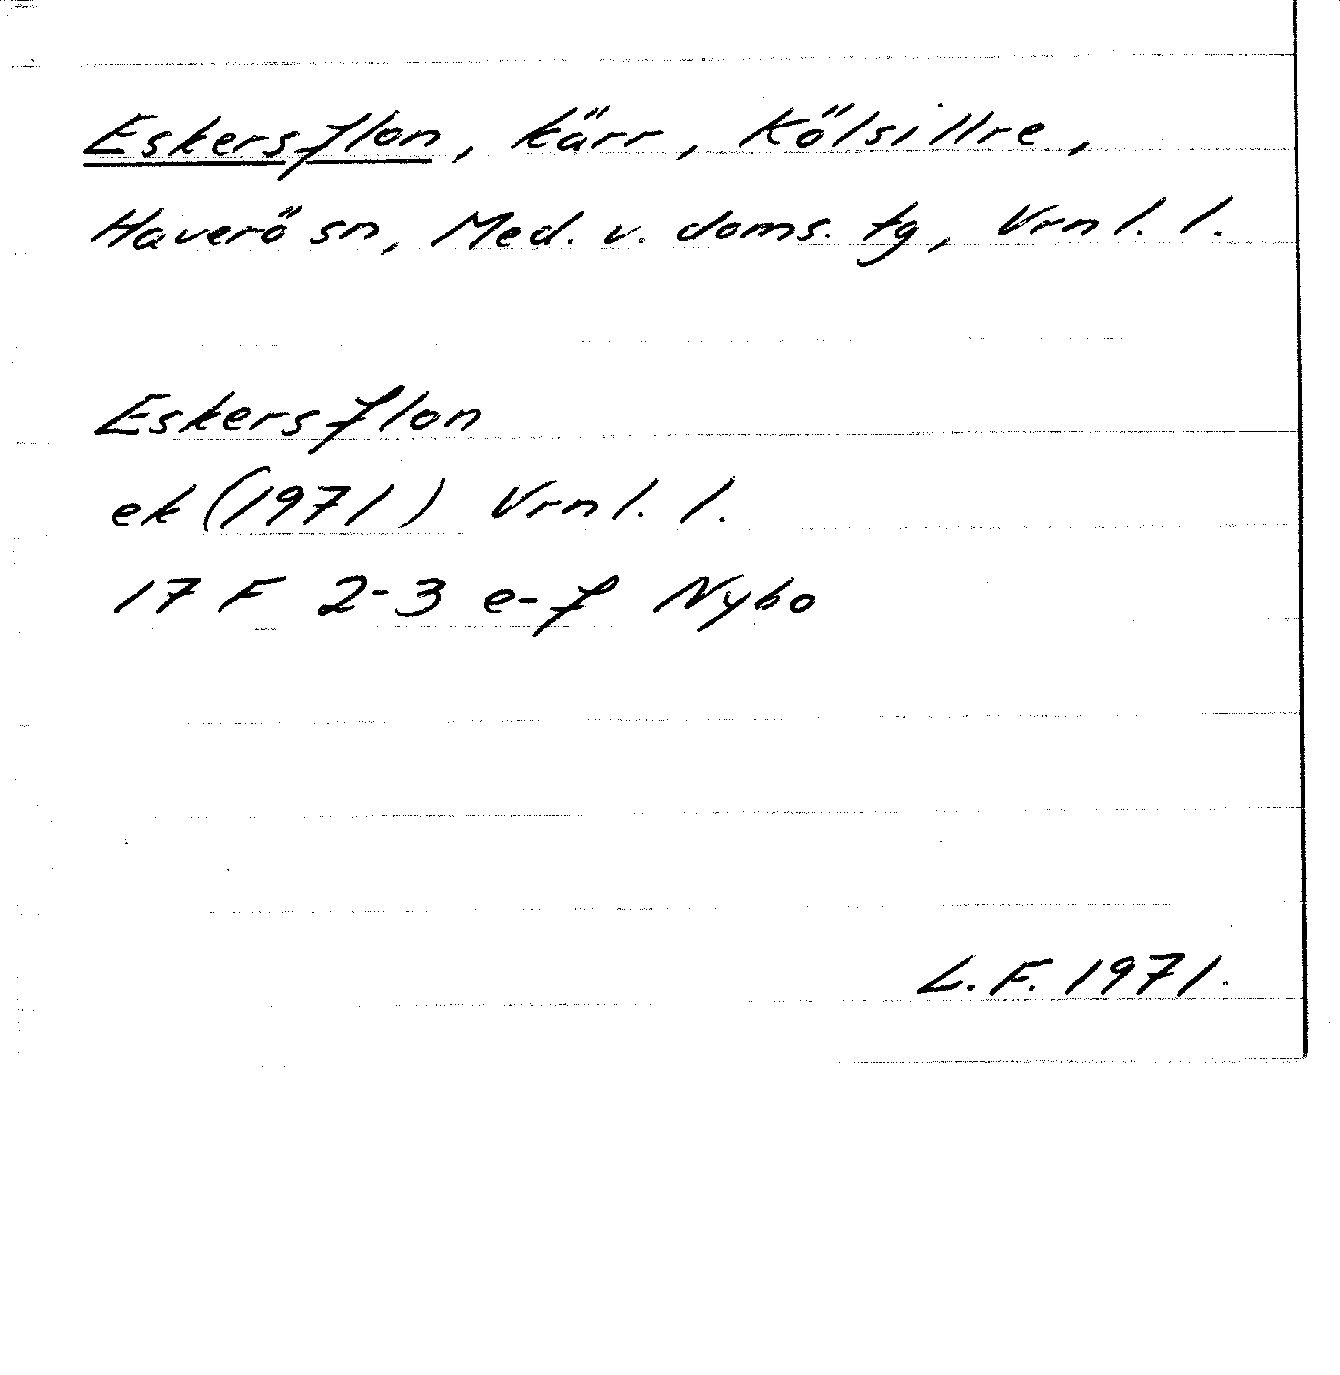 Eskersflon, kärr, Kölsillre,
Haverö sn, Med. v. doms. tg, Vrnl. l.
Eskersflon
ek (1971) Vrnl. l.
17 F 2-3 e-f Nybo
L.F. 1971.